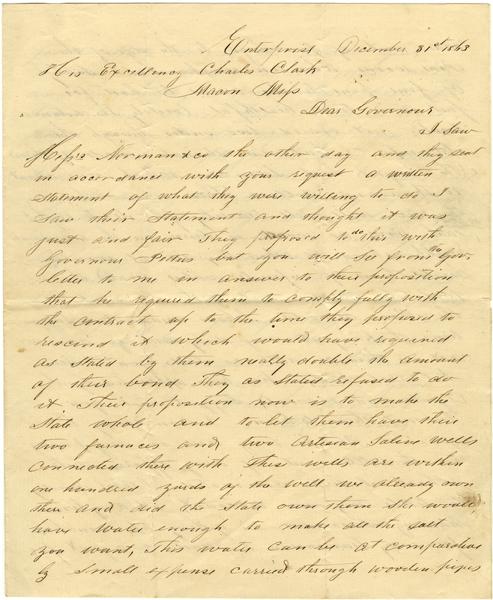 Enterprise December 31st 1863
His Excellency Charles Clark
Macon Miss
Dear Governour
I Saw
Messrs Norman & co the other day and they sent
in accordance with your request a written
Statement of what they were willing to do I
Saw their Statement and thought it was
just and fair They proposed to do this with
Governour Pettus but you will See from the Gov-
letter to me in answer to their proposition
that he required them to comply fully with
the contract up to the time they proposed to
rescind it which would have required
as Stated by them nearly double the amount
of their bond They as Stated refused to do
it Their proposition now is to make the
State whole and to let them have their
two furnaces and two Artesian Saline wells
connected there with These wells are within
one hundred yards of the well we already own
there and did the State own them She would
have water enough to make all the Salt
you want, This water can be at comparative
ly Small expense carried through wooden pipes